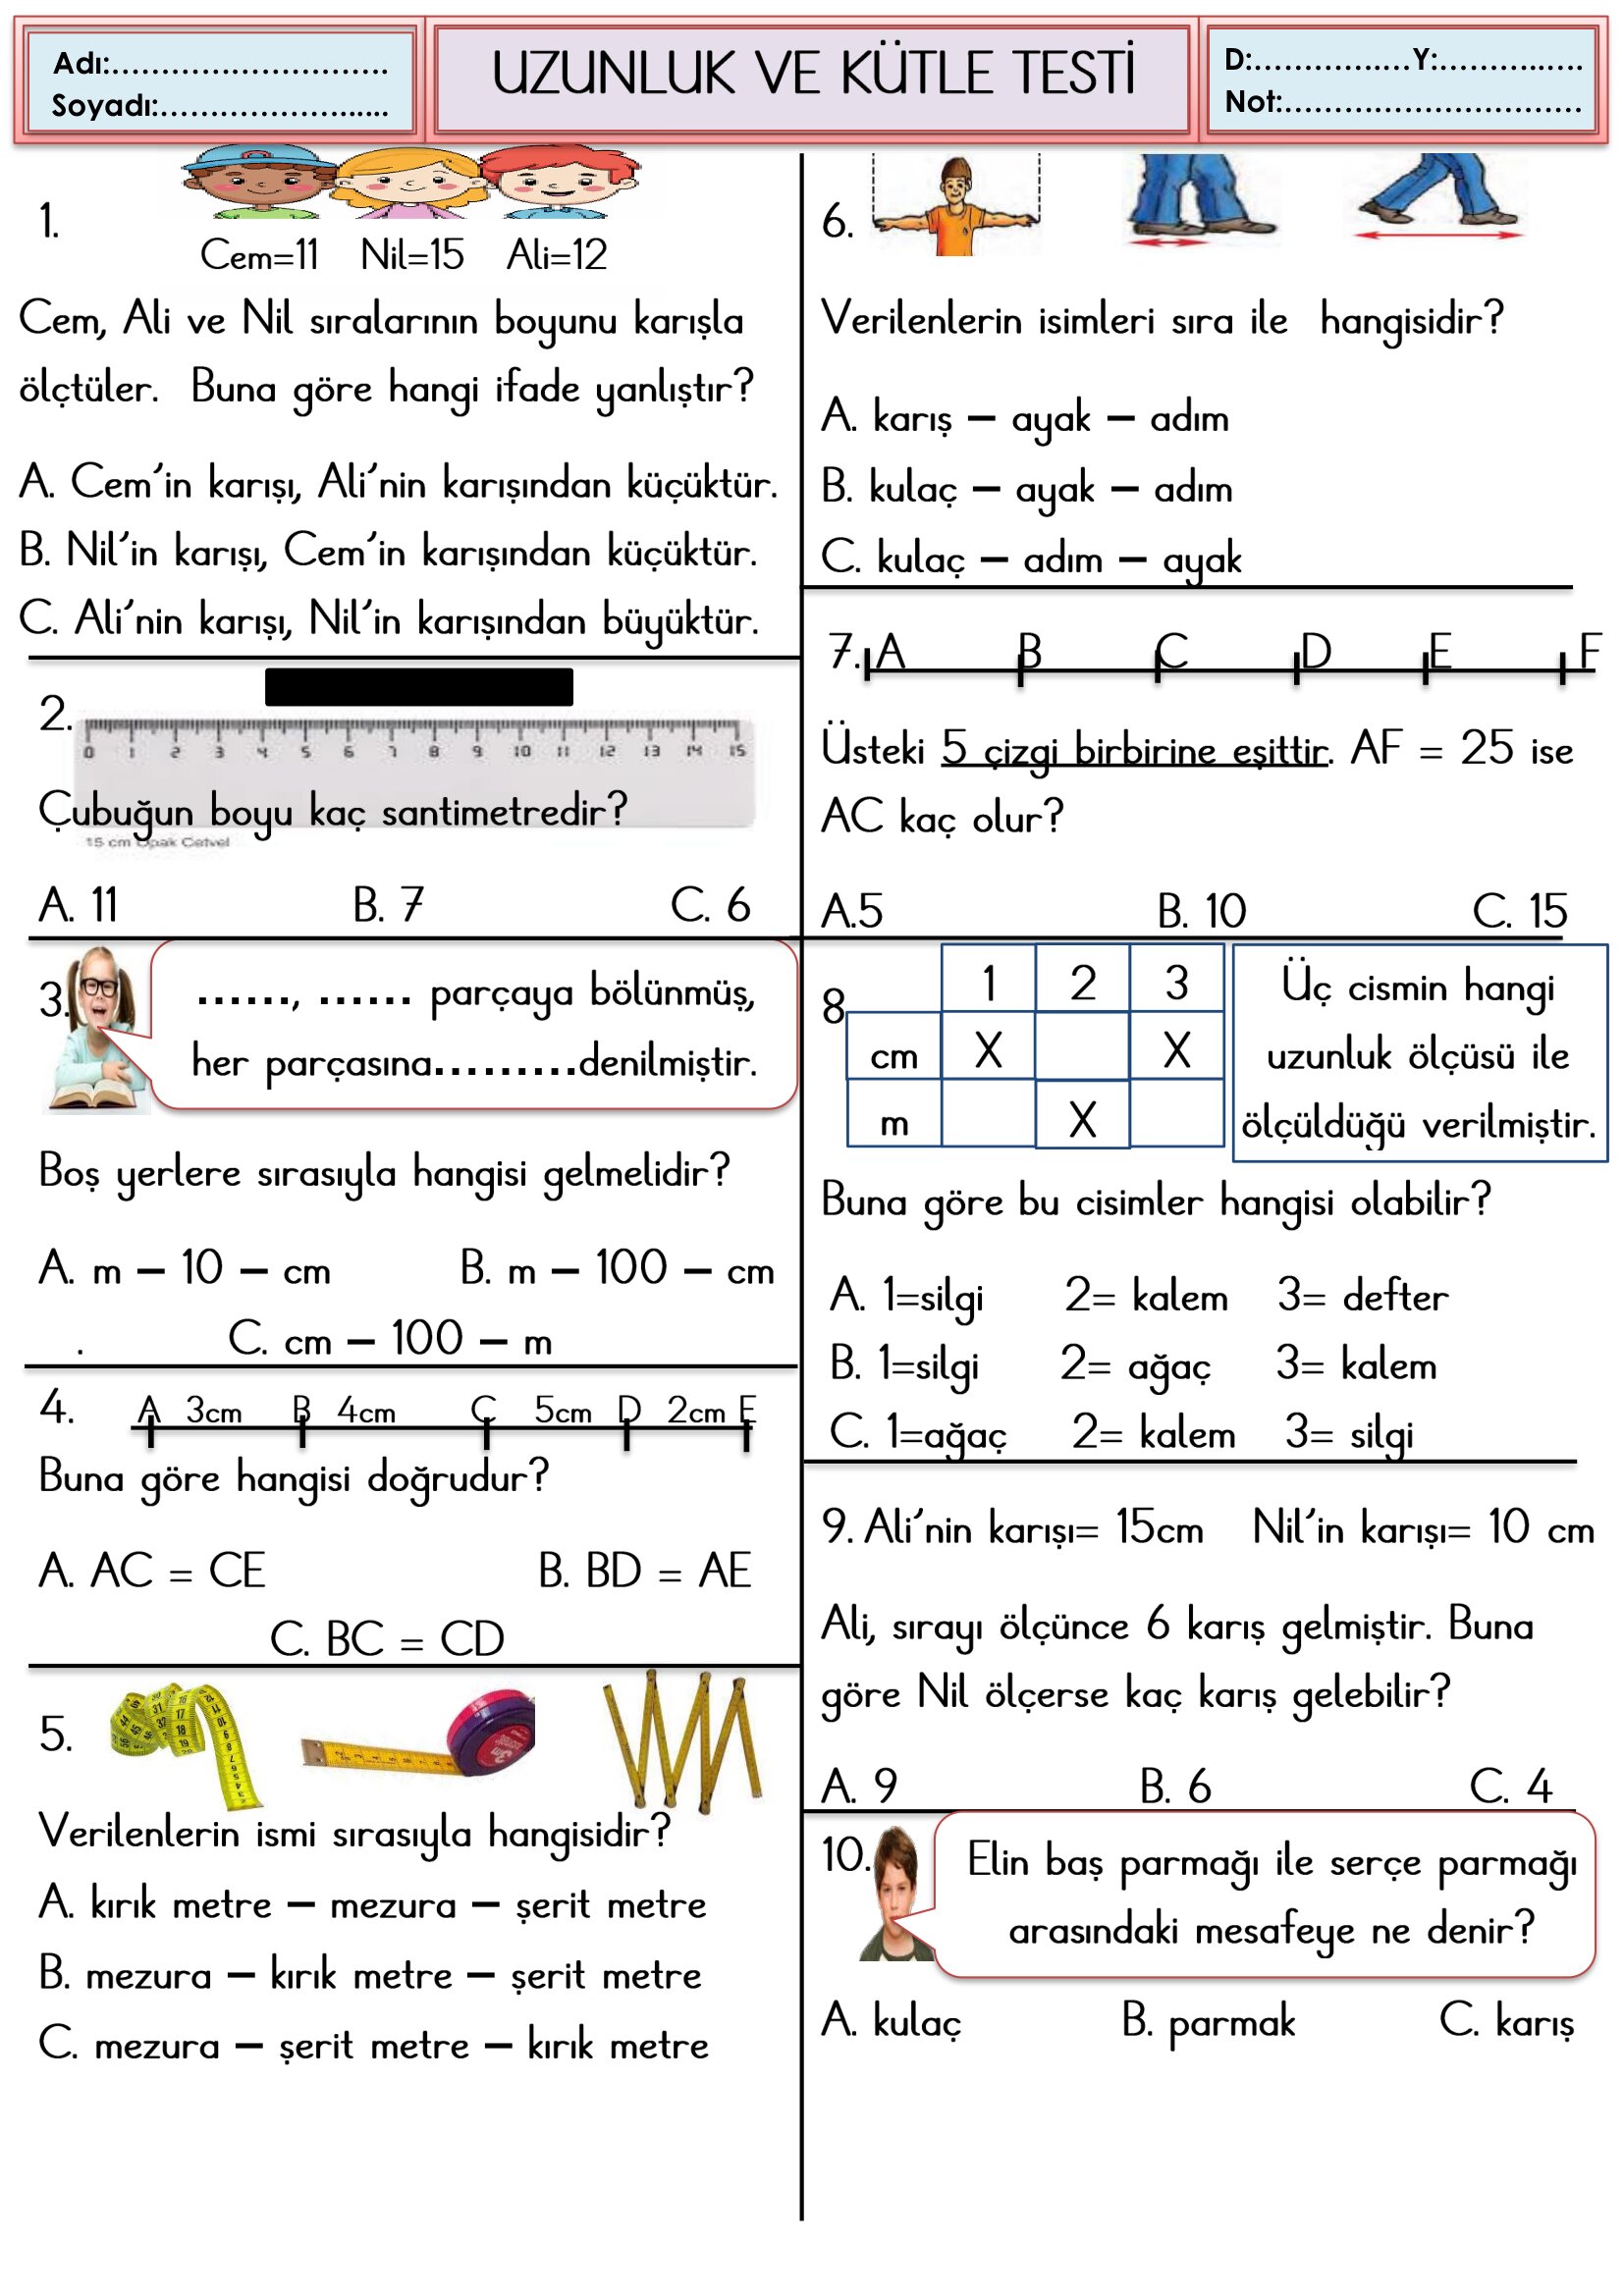 Adı:............................
Soyadı:........................
UZUNLUK VE KÜTLE TESTİ
D:................Y:...............
Not:..............................
1.
Cem=11 Nil=15 Ali=12
Cem, Ali ve Nil sıralarının boyunu karışla
ölçtüler. Buna göre hangi ifade yanlıştır?
A. Cem'in karışı, Ali'nin karışından küçüktür.
B. Nil'in karışı, Cem'in karışından küçüktür.
C. Ali'nin karışı, Nil'in karışından büyüktür.
2.
0 1 2 3 4 5 6 7 8 9 10 11 12 13 14 15
Çubuğun boyu kaç santimetredir?
15 cm Opak Cetvel
A. 11 B. 7 C. 6
3.
......, ...... parçaya bölünmüş,
her parçasına.........denilmiştir.
Boş yerlere sırasıyla hangisi gelmelidir?
A. m – 10 – cm B. m – 100 – cm
. C. cm – 100 – m
4. A 3cm B 4cm C 5cm D 2cm E
Buna göre hangisi doğrudur?
A. AC = CE B. BD = AE
C. BC = CD
5.
Verilenlerin ismi sırasıyla hangisidir?
A. kırık metre – mezura – şerit metre
B. mezura – kırık metre – şerit metre
C. mezura – şerit metre – kırık metre
6.
Verilenlerin isimleri sıra ile hangisidir?
A. karış – ayak – adım
B. kulaç – ayak – adım
C. kulaç – adım – ayak
7. A B C D E F
Üsteki 5 çizgi birbirine eşittir. AF = 25 ise
AC kaç olur?
A.5 B. 10 C. 15
8
1 2 3
cm X X
m X
Üç cismin hangi
uzunluk ölçüsü ile
ölçüldüğü verilmiştir.
Buna göre bu cisimler hangisi olabilir?
A. 1=silgi 2= kalem 3= defter
B. 1=silgi 2= ağaç 3= kalem
C. 1=ağaç 2= kalem 3= silgi
9. Ali'nin karışı= 15cm Nil'in karışı= 10 cm
Ali, sırayı ölçünce 6 karış gelmiştir. Buna
göre Nil ölçerse kaç karış gelebilir?
A. 9 B. 6 C. 4
10.
Elin baş parmağı ile serçe parmağı
arasındaki mesafeye ne denir?
A. kulaç B. parmak C. karış